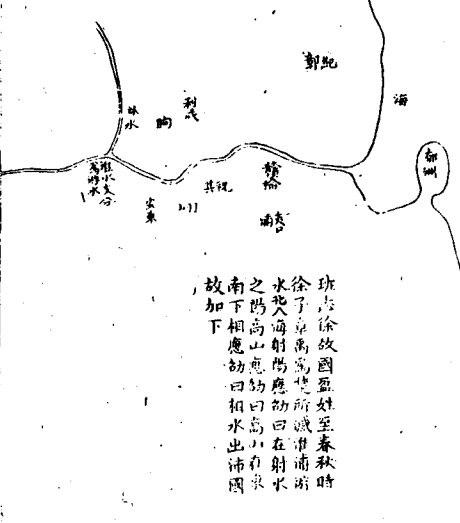 紀鄣
海
郁洲
利成
朐
沭水
贛榆
祝其
夾口浦
淮水支分
為游水
班志徐故國盈姓至春秋時
徐子章禹為楚所滅淮浦游
水北入海射陽應劭曰在射水
之陽高山應劭曰高山有泉
南下相應劭曰相水出沛國
故加下